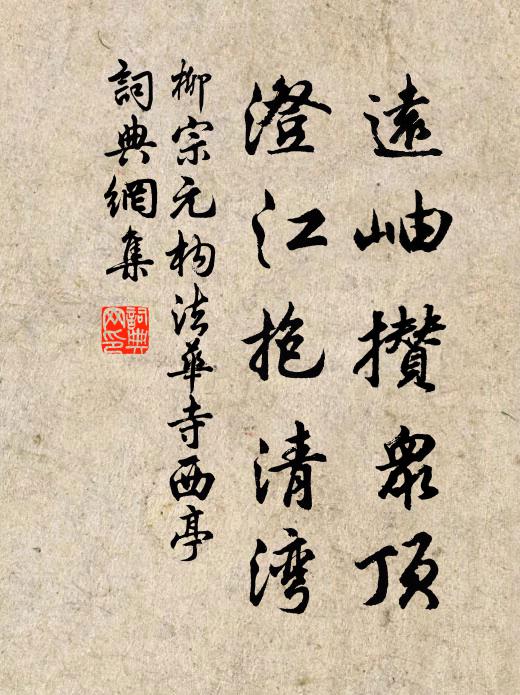 遠岫攢衆頂
澄江抱清湾
柳宗元构法華寺西亭
詞典網集
詞典
网印